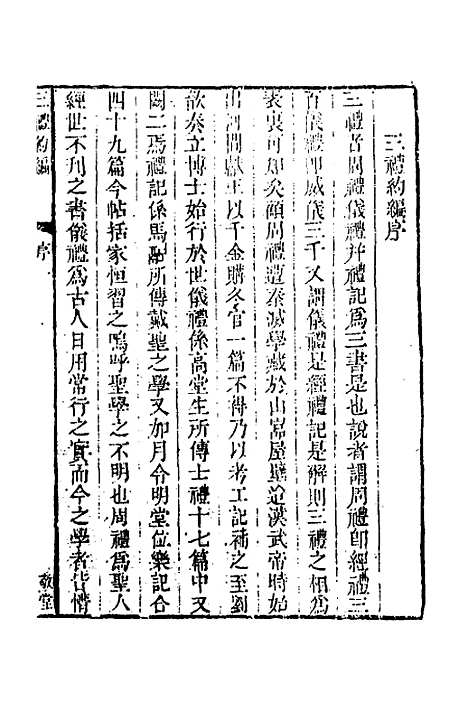 三禮約編序
三禮者周禮儀禮并禮記為三書是也說者謂周禮即經禮三
百儀禮即威儀三千又謂儀禮是經禮記是解則三禮之相為
表裏可知矣顧周禮遭秦滅學藏於山巖屋壁迨漢武帝時始
出河間獻王以千金購冬官一篇不得乃以考工記補之至劉
歆奏立博士始行於世儀禮係高堂生所傳士禮十七篇中又
闕二焉禮記係馬融所傳戴聖之學又加月令明堂位樂記合
四十九篇今帖括家恒習之嗚呼聖學之不明也周禮為聖人
經世不刊之書儀禮為古人日用常行之實而今之學者皆惜
三禮約編
序
敬堂